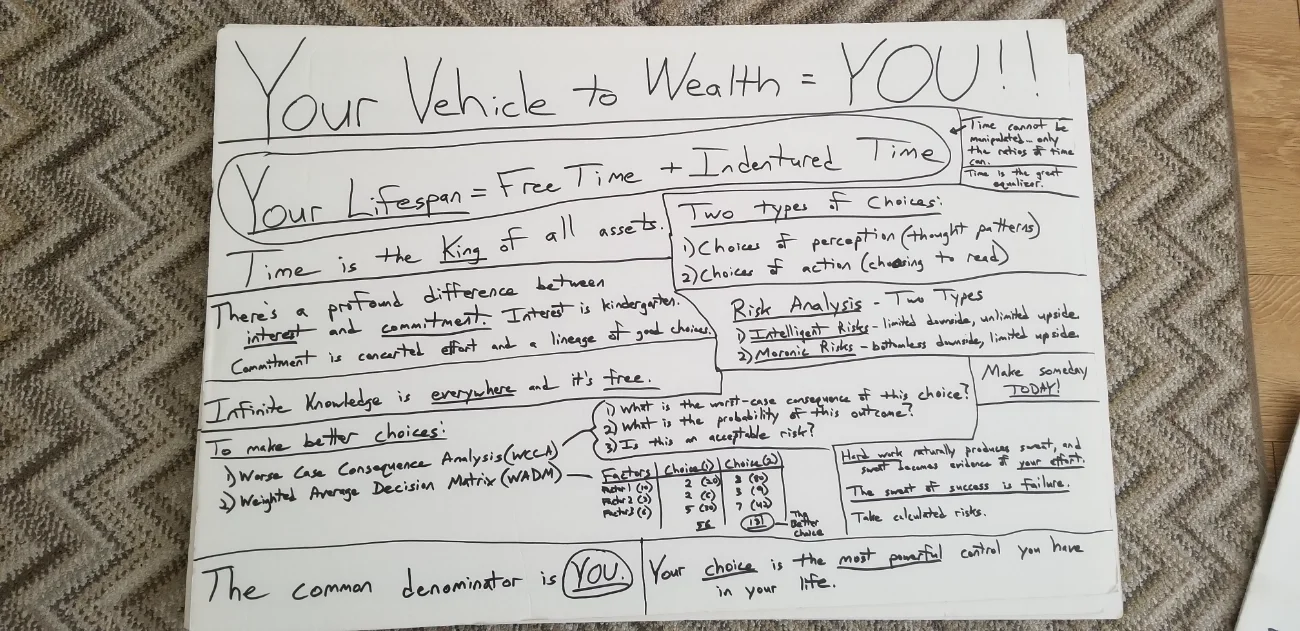 Your Vehicle to Wealth = YOU!!
Your Lifespan = Free Time + Indentured Time
Time cannot be
manipulated... only
the ratios of time
can.
Time is the great
equalizer.
Time is the King of all assets.
Two types of Choices:
1) Choices of perception (thought patterns)
2) Choices of action (choosing to read)
There's a profound difference between
interest and commitment. Interest is kindergarten.
Commitment is concerted effort and a lineage of good choices.
Risk Analysis - Two Types
1) Intelligent Risks - limited downside, unlimited upside
2) Moronic Risks - bottomless downside, limited upside
Infinite Knowledge is everywhere and it's free.
Make someday
TODAY!
To make better choices:
1) Worse Case Consequence Analysis (WCCA)
2) Weighted Average Decision Matrix (WADM)
1) What is the worst-case consequence of this choice?
2) What is the probability of this outcome?
3) Is this an acceptable risk?
Factors Choice (1) Choice (2)
Factor 1 (10) 2 (20) 8 (80)
Factor 2 (3) 2 (6) 3 (9)
Factor 3 (6) 5 (30) 7 (42)
56 131
The
Better
Choice
Hard work naturally produces sweat, and
sweat becomes evidence of your effort.
The sweat of success is failure.
Take calculated risks.
The common denominator is YOU.
Your choice is the most powerful control you have
in your life.